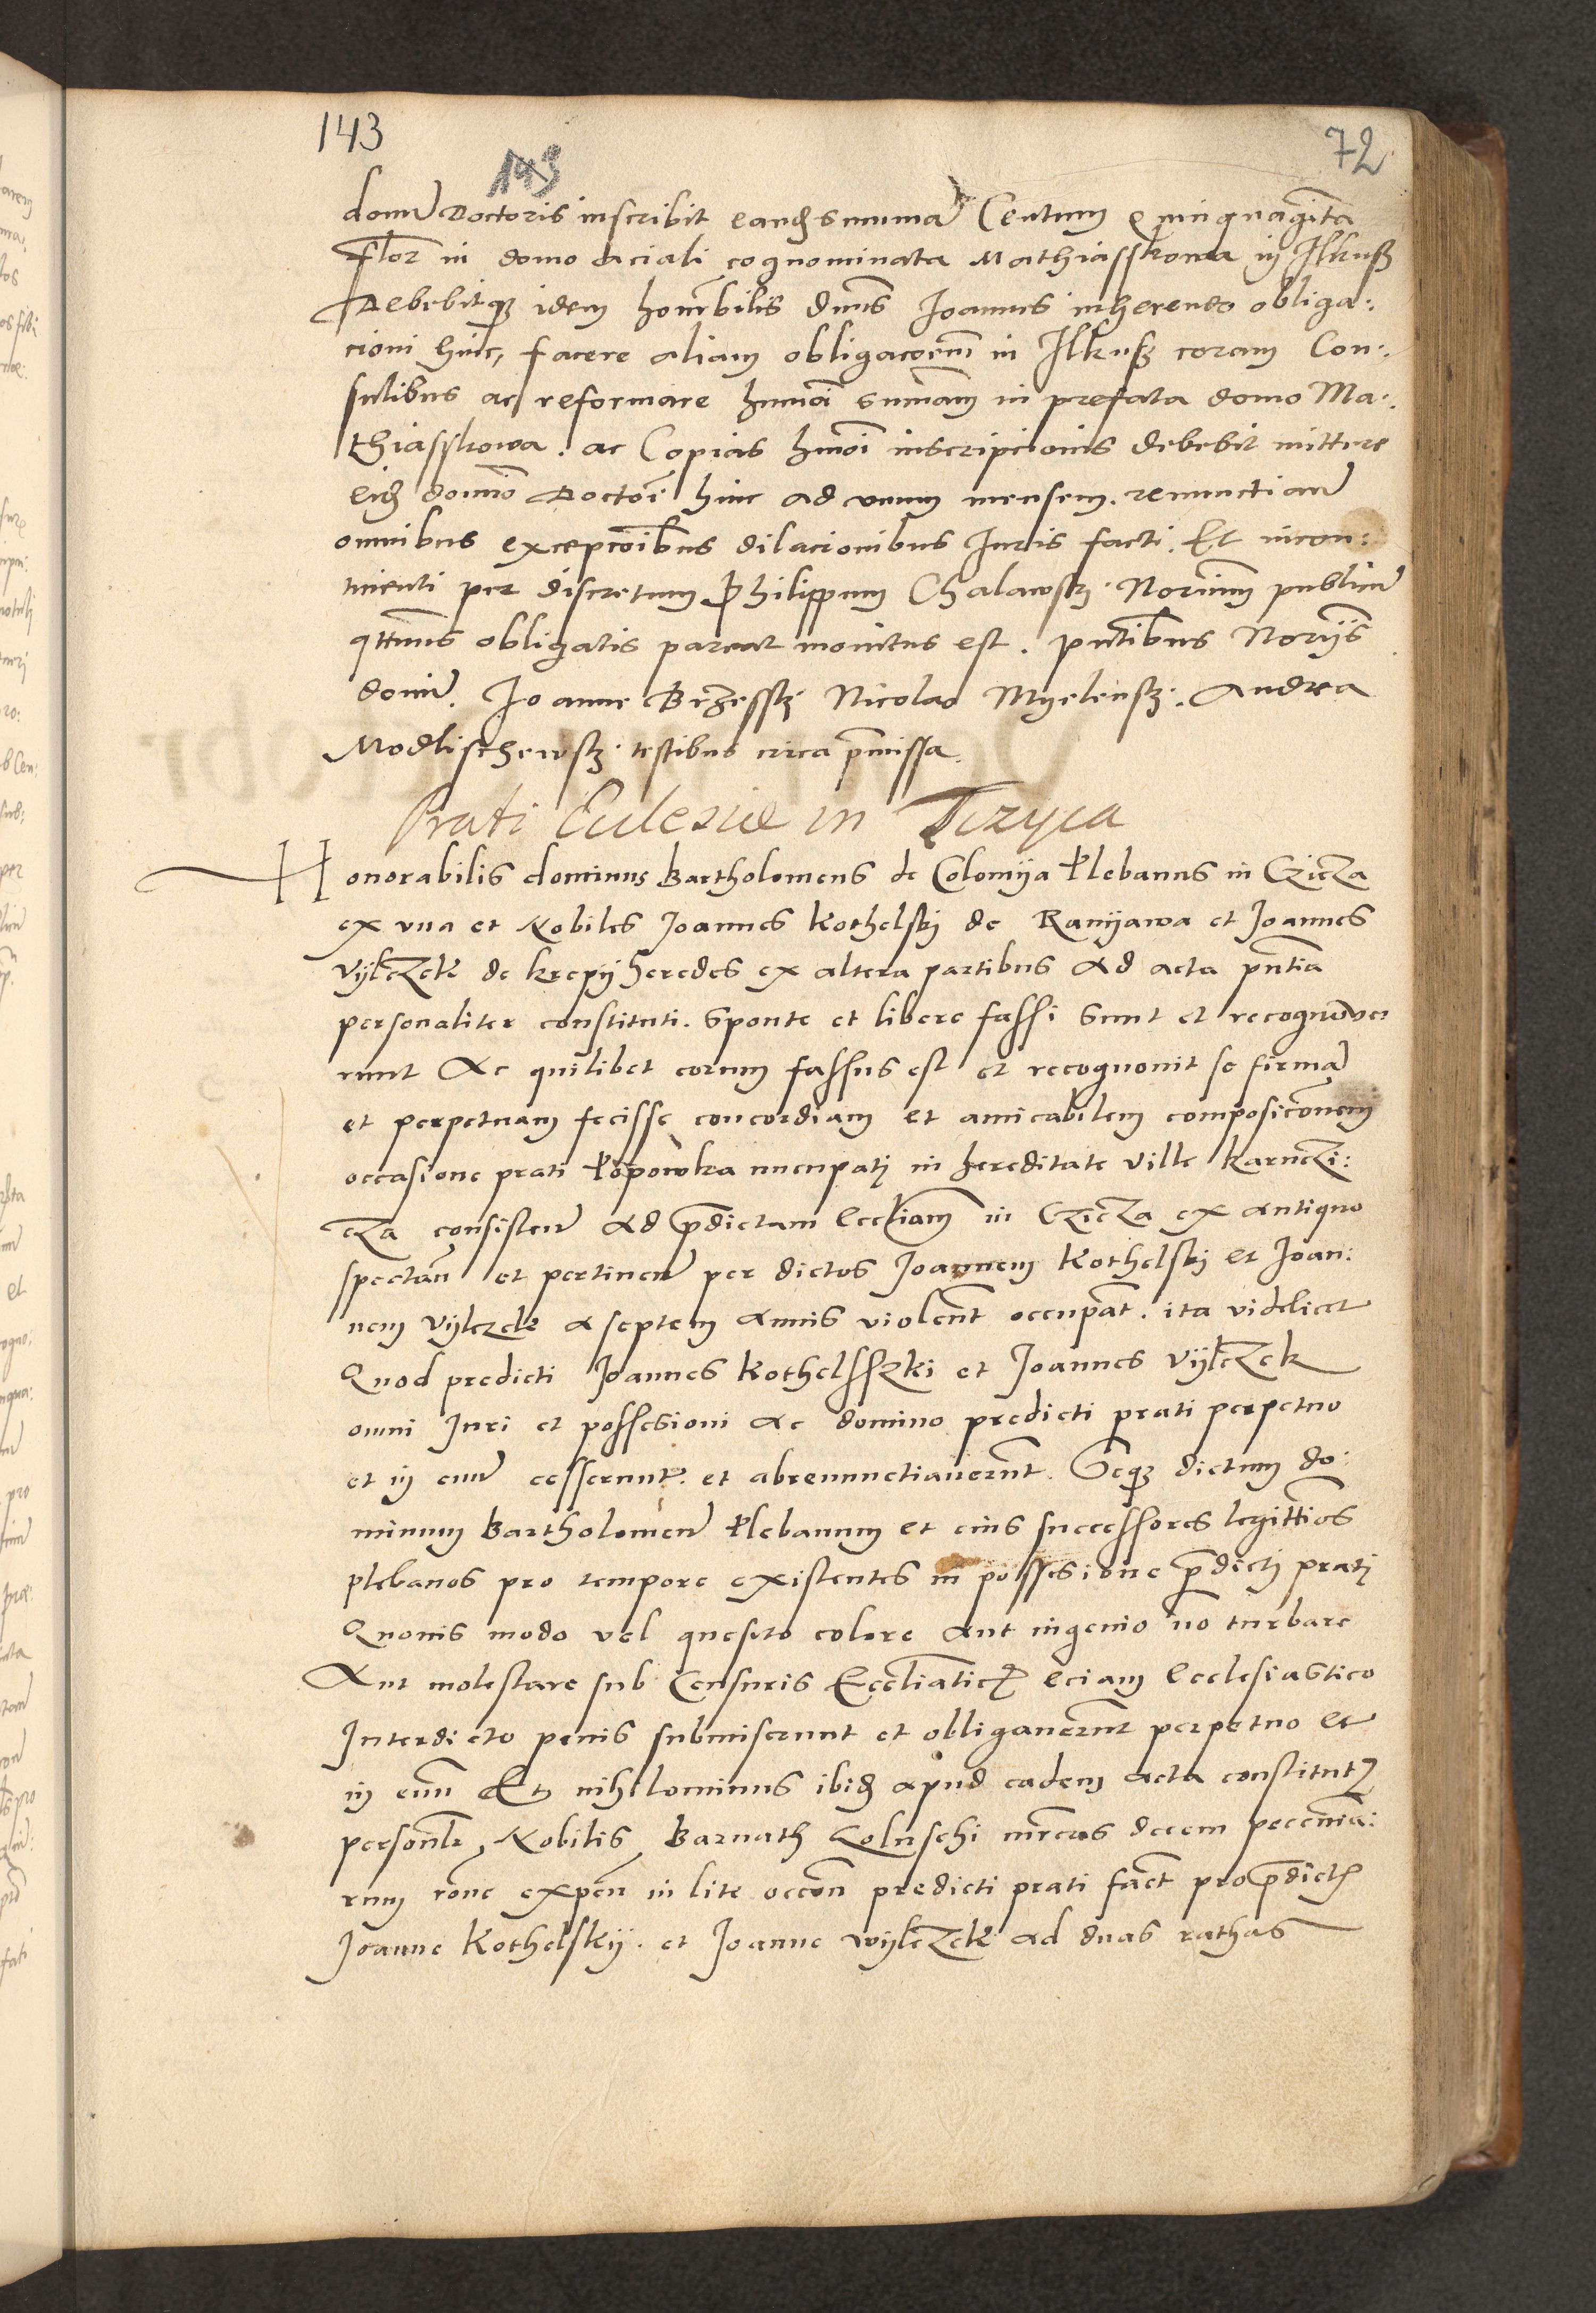 143
72
143
domū doctoris inscribit eandē summā Centum quinquagīta
Flor in domo aciali cognominata Mathiasskowa in Ilkusz
Debebitq; idem honōrbilis dnūs Joannes inherendo obliga:
cioni hinc, facere aliam obligacoēm in Ilkusz coram Con:
sulibus ac reformare hmōi summām in prefata domo Ma:
thiasskowa. ac Copias hmōi inscripcionis debebit mittere
eidē domīo doctorī hinc ad vnum mensem. renunctiand
omnibus excepcoībus dilacionibus Juris facti. Et incon:
tinenti per discretum Philippum Chalawsky Notārium publicū
qttnūs obligatis pareat monitus est. pntībus Notrijs
domī. Joanne Brzessky Nicolao Myelensky. Andrea
Modlischewsky testibus circa p̄missa.
Prati Eclesiæ in Tczyca
Honorabilis dominus Bartholomeus de Colomija Plebanus in Cziczа
ex vna et Nobiles Joannes Kothelskj de Ranijawa et Joannes
Vijlczek de krepij heredes ex altera partibus Ad acta pn̄tia
personaliter constituti. Sponte et libere fassi sunt et recognoue
runt Ac quilibet eorum fassus est et recognouit se firmā
et perpetuam fecisse concordiam et amicabilem composicōnem
occasione prati Popowka nuncupatj in hereditate ville karnczi:
cza consisten̄ Ad p̄dictam Eccliam in Cziczа ex antiquo
spectan̄ et pertinen̄ per dictos Joannem Kothelskj et Joan:
nem Vijlczek A septem Annis violent̄ occupat̄. ita videlicet
Quod predicti Joannes Kothelsszki et Joannes Vijlczek
omni Juri et possesioni Ac domino predicti prati perpetuo
et in euū cesserunt. et abrenunctiauerūnt. Seq; dictum do:
minum Bartholomeū Plebanum et eius successores legittīos
plebanos pro tempore existentes in possesione p̄dictj pratj
Quouis modo vel quesito colore Aut ingenio nō turbare
Aut molestare sub Censuris Eccliāticꝭ eciam Ecclesiastico
Interdicto penis submiserunt et obligauerūnt perpetuo et
in euū Et nihilominus ibidē apud eadem acta constitutꝭ
personlr, Nobilis Barnath Goluschi mrcas decem peccnia:
rum rōne expen̄ in lite occōn predicti prati fact̄ pro p̄dictꝭ
Joanne Kothelskij. et Joanne wijlczek ad duas rathas